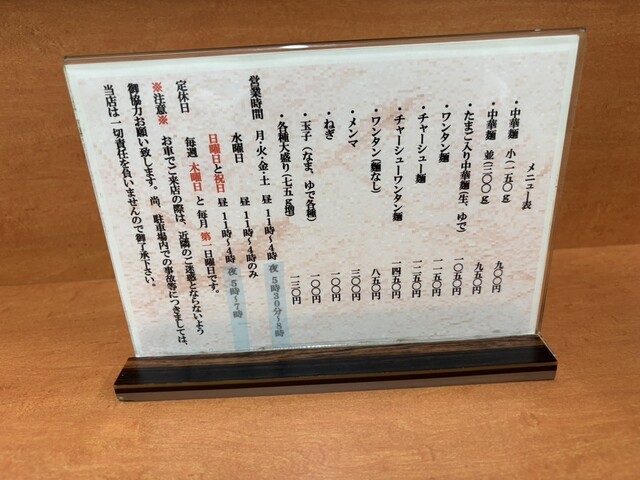 メニュー表
・中華麺 小(一五〇g) 九〇〇円
・中華麺 並(三〇〇g) 九五〇円
・たまご入り中華麺(生、ゆで) 一〇五〇円
・ワンタン麺 一一五〇円
・チャーシュー麺 一二五〇円
・チャーシューワンタン麺 一四五〇円
・ワンタン(麺なし) 八五〇円
・メンマ 三〇〇円
・ねぎ 一〇〇円
・玉子(なま、ゆで各種) 一〇〇円
・各種大盛り(七五g増) 一三〇円
営業時間 月・火・金・土 昼 11時～4時 夜 5時30分～8時
水曜日 昼 11時～4時のみ
日曜日と祝日 昼 11時～4時 夜 5時～7時
定休日 毎週 木曜日 と 毎月 第一日曜日です。
※注意※ お車でご来店の際は、近隣のご迷惑とならないよう
御協力お願い致します。尚、駐車場内での事故等につきましては、
当店は一切責任を負いませんので御了承下さい。